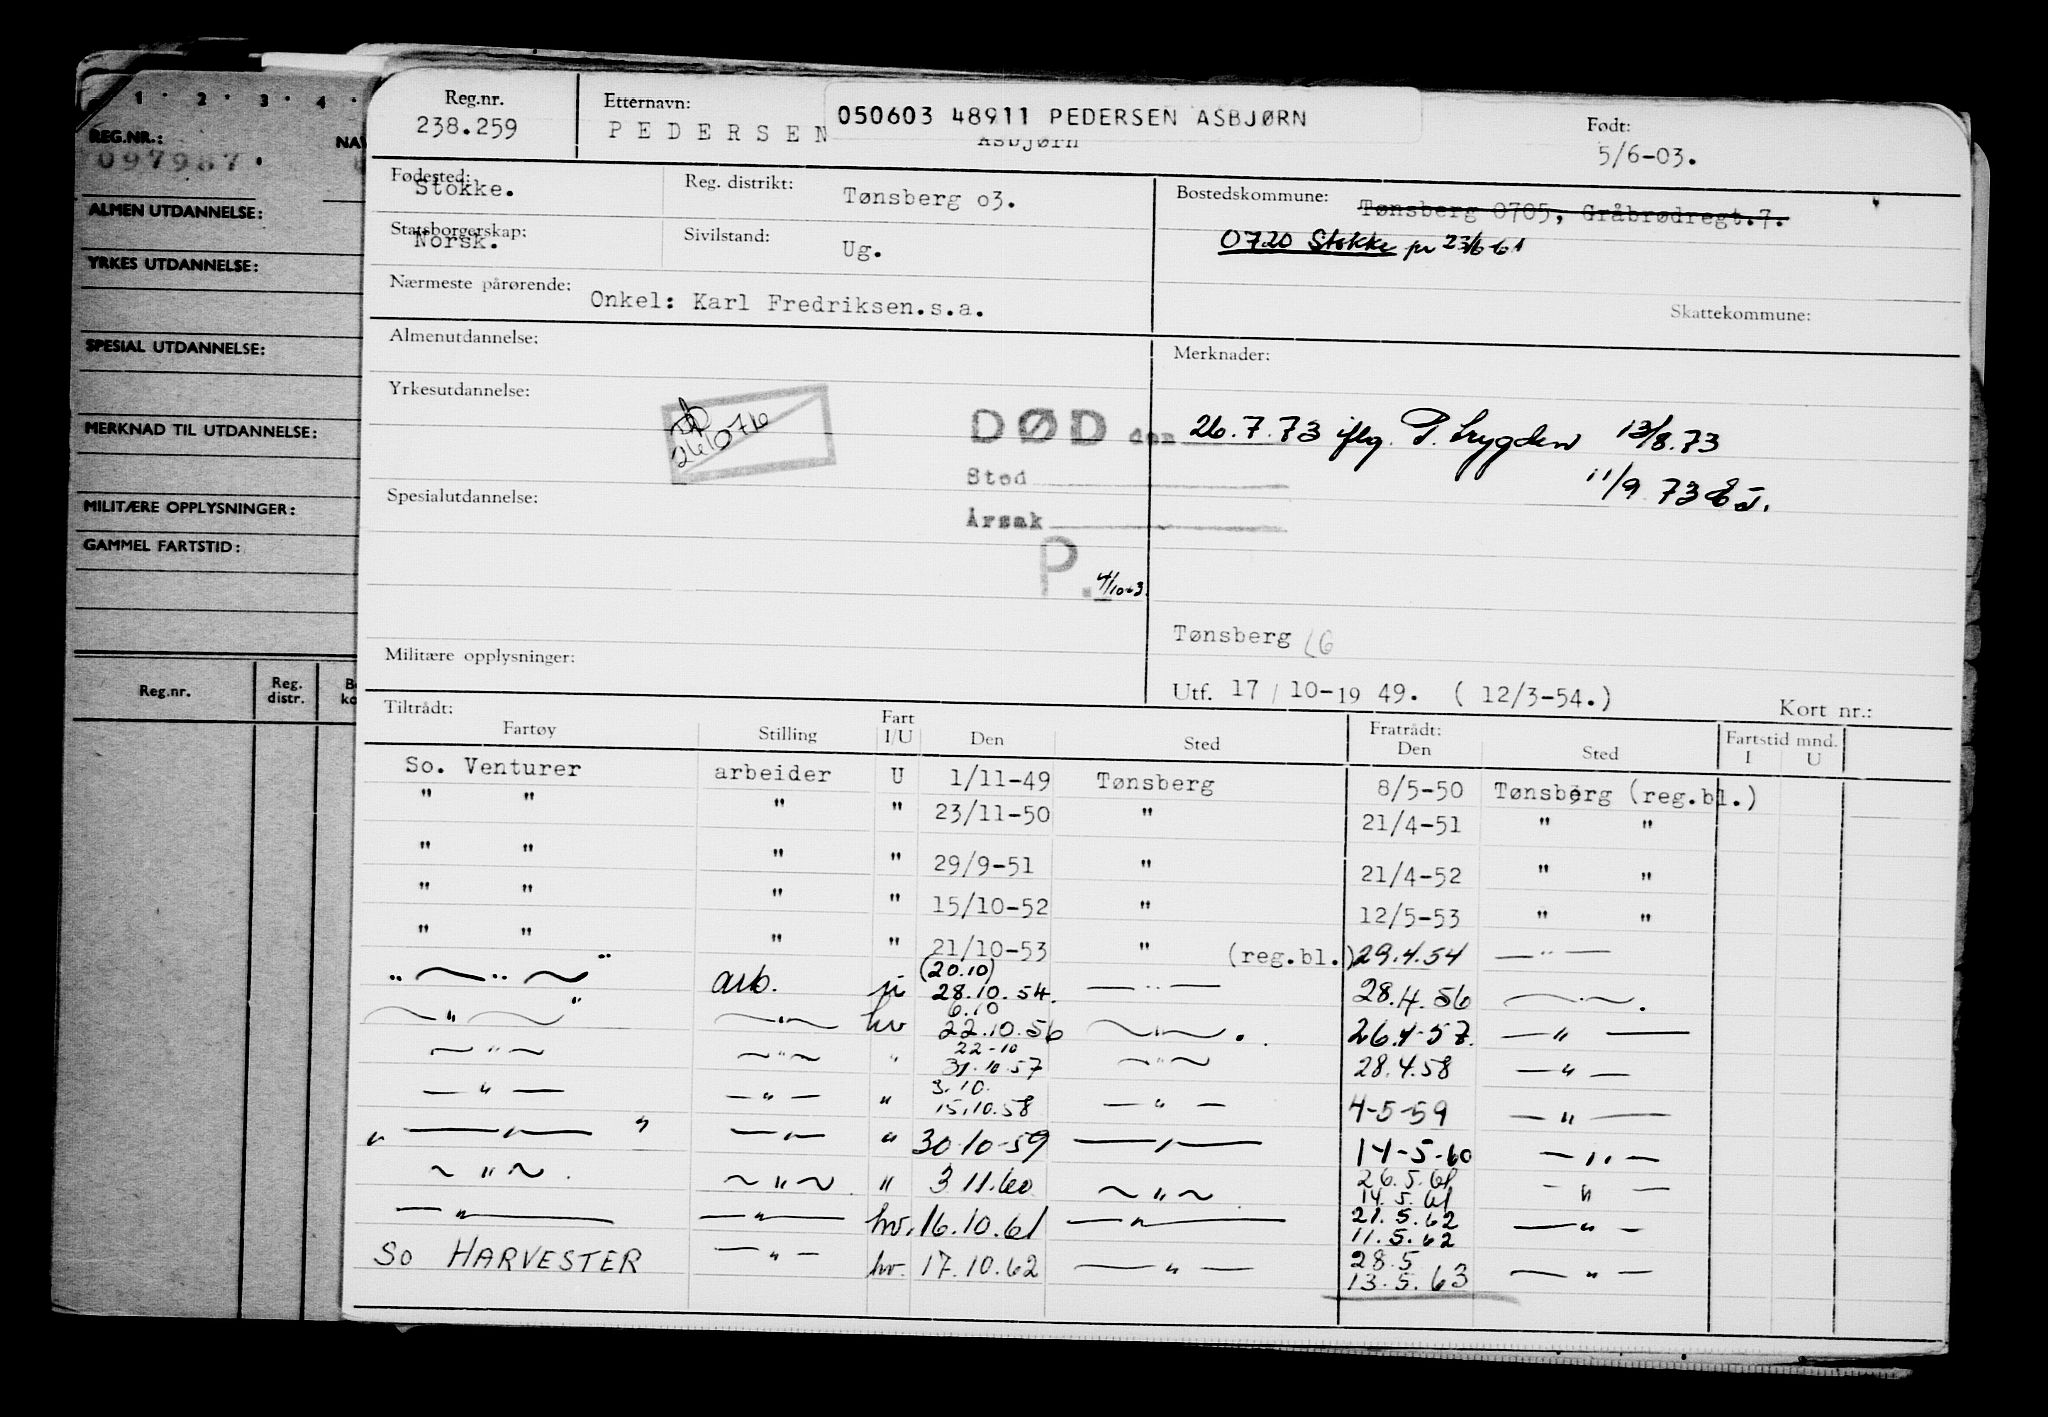 1 · 2 · 3 · 4 ·
REG.NR.:
097987.
ALMEN UTDANNELSE:
YRKES UTDANNELSE:
SPESIAL UTDANNELSE:
MERKNAD TIL UTDANNELSE:
MILITÆRE OPPLYSNINGER:
GAMMEL FARTSTID:
Reg.nr.
Reg. distr.
Reg.nr.
238.259
Etternavn:
PEDERSEN
050603 48911 PEDERSEN ASBJØRN
Asbjørn
Født:
5/6-03.
Fødested:
Stokke.
Reg. distrikt:
Tønsberg o3.
Bostedskommune:
Tønsberg 0705, Gråbrødregt.7.
0720 Stokke pr 23/6-61
Statsborgerskap:
Norsk.
Sivilstand:
Ug.
Nærmeste pårørende:
Onkel: Karl Fredriksen.s.a.
Skattekommune:
Almenutdannelse:
Merknader:
Yrkesutdannelse:
DØD den 26.7.73 iflg. P. trygden 13/8.73
Sted
11/9 73
Spesialutdannelse:
Årsak
P. 4/10-63
Tønsberg
Militære opplysninger:
Utf. 17 / 10-19 49. ( 12/3-54.)
Kort nr.:
Tiltrådt:
Fartøy Stilling Fart I/U Den Sted Fratrådt: Den Sted Fartstid mnd. I U
So. Venturer arbeider U 1/11-49 Tønsberg 8/5-50 Tønsberg (reg.bl.)
" " " " 23/11-50 " 21/4-51 " "
" " " " 29/9-51 " 21/4-52 " "
" " " " 15/10-52 " 12/5-53 " "
" " " " 21/10-53 " (reg.bl.) 29.4.54 — " —
(20.10)
" — " — " arb. u 28.10.54. — " — 28.4.56 — " — .
6.10
— " — " — " — hv 22.10.56 — " — . 26.4-57. — " —
22-10
— " — — " — " 31.10.57 — " — 28.4.58 — " —
3.10.
— " — — " — " 15.10.58 — " — 4-5-59 — " —
" — " — " — " — " 30.10-59 — " — 14-5-60 — " —
— " — . — " — . " 3.11.60 — " — 26.5.61 — " —
14.5.61
— " — — " — hv. 16.10.61 — " — 21.5.62 — " —
11.5.62
So HARVESTER — " — hv. 17.10.62 — " — 28.5 — " —
13.5.63